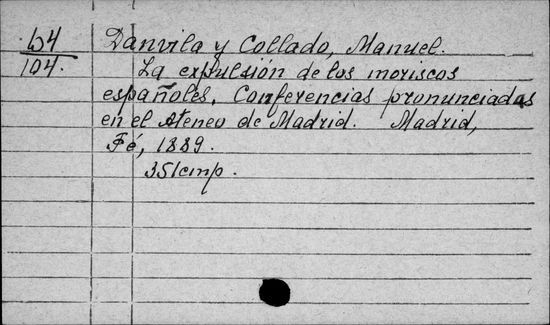 54
104.
Danvila y Collado, Manuel.
La expulsión de los moriscos
españoles. Conferencias pronunciadas
en el Ateneo de Madrid. Madrid,
Fé, 1889.
351 стр.